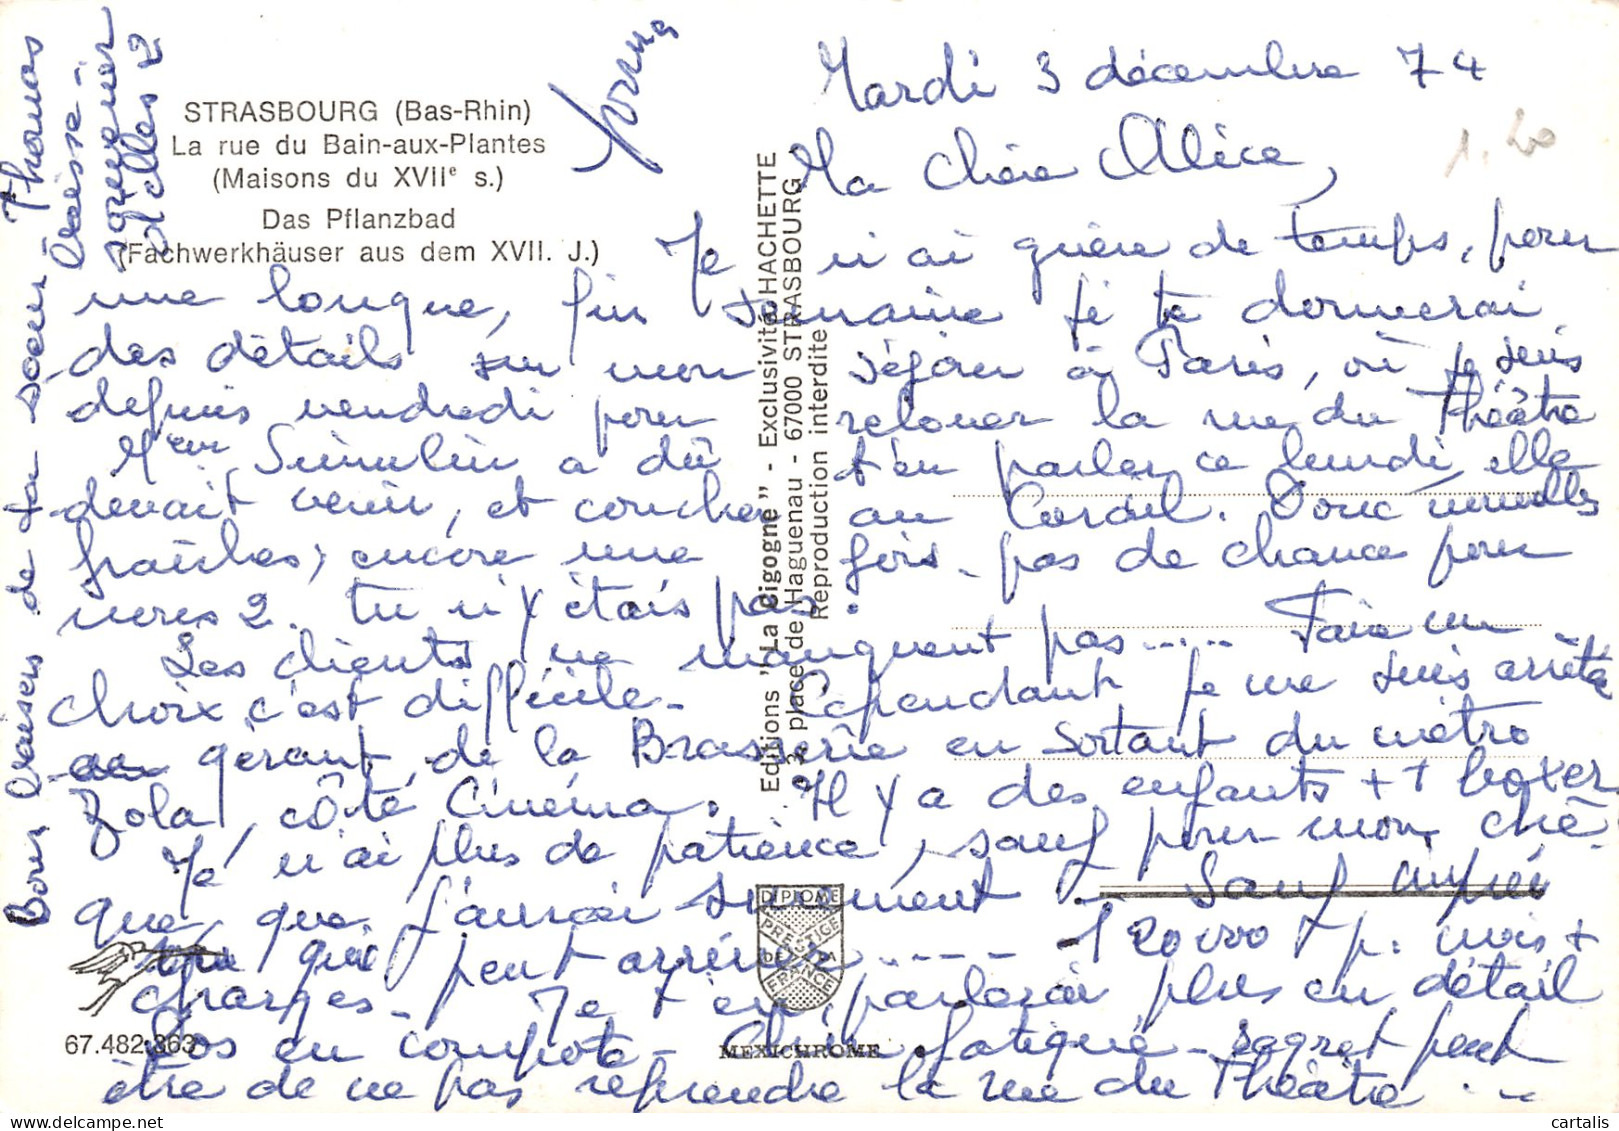 STRASBOURG (Bas-Rhin)
La rue du Bain-aux-Plantes
(Maisons du XVIIe s.)
Das Pflanzbad
(Fachwerkhäuser aus dem XVII. J.)
Mardi 3 décembre 74
1.20
Ma chère Alice,
Je n'ai guère de temps, pour
une longue, fin semaine je te donnerai
des détails sur mon séjour à Paris, où je suis
depuis vendredi pour relouer la rue du Théâtre
Mme a dû t'en parler ce lundi, elle
devait venir, et coucher au Donc nouvelles
fraîches, encore une fois pas de chance pour
nous 2. tu n'y étais pas.
Les clients ne manquent pas..... Faire un
choix c'est difficile. Cependant je me suis arrêtée
au gérant de la Brasserie en sortant du métro
Zola, côté Cinéma. Il y a des enfants + 1 boxer
Je n'ai plus de patience, sauf pour mon chè-
que, que j'aurai surement. Sauf impré
vu qui peut arriver..... 120000 F p. mois +
charges. Je t'en parlerai plus en détail
Dos en compote. Chien fatigué. regret peut
être de ne pas reprendre la rue du Théâtre...
Bons baisers de ta soeur. Thomas
baisse-
Editions "La Cigogne" - Exclusivité HACHETTE -
3, place de Haguenau - 67000 STRASBOURG
Reproduction interdite
DIPLOME
PRESTIGE
DE LA
FRANCE
MEXICHROME
67.482.363
cartalis